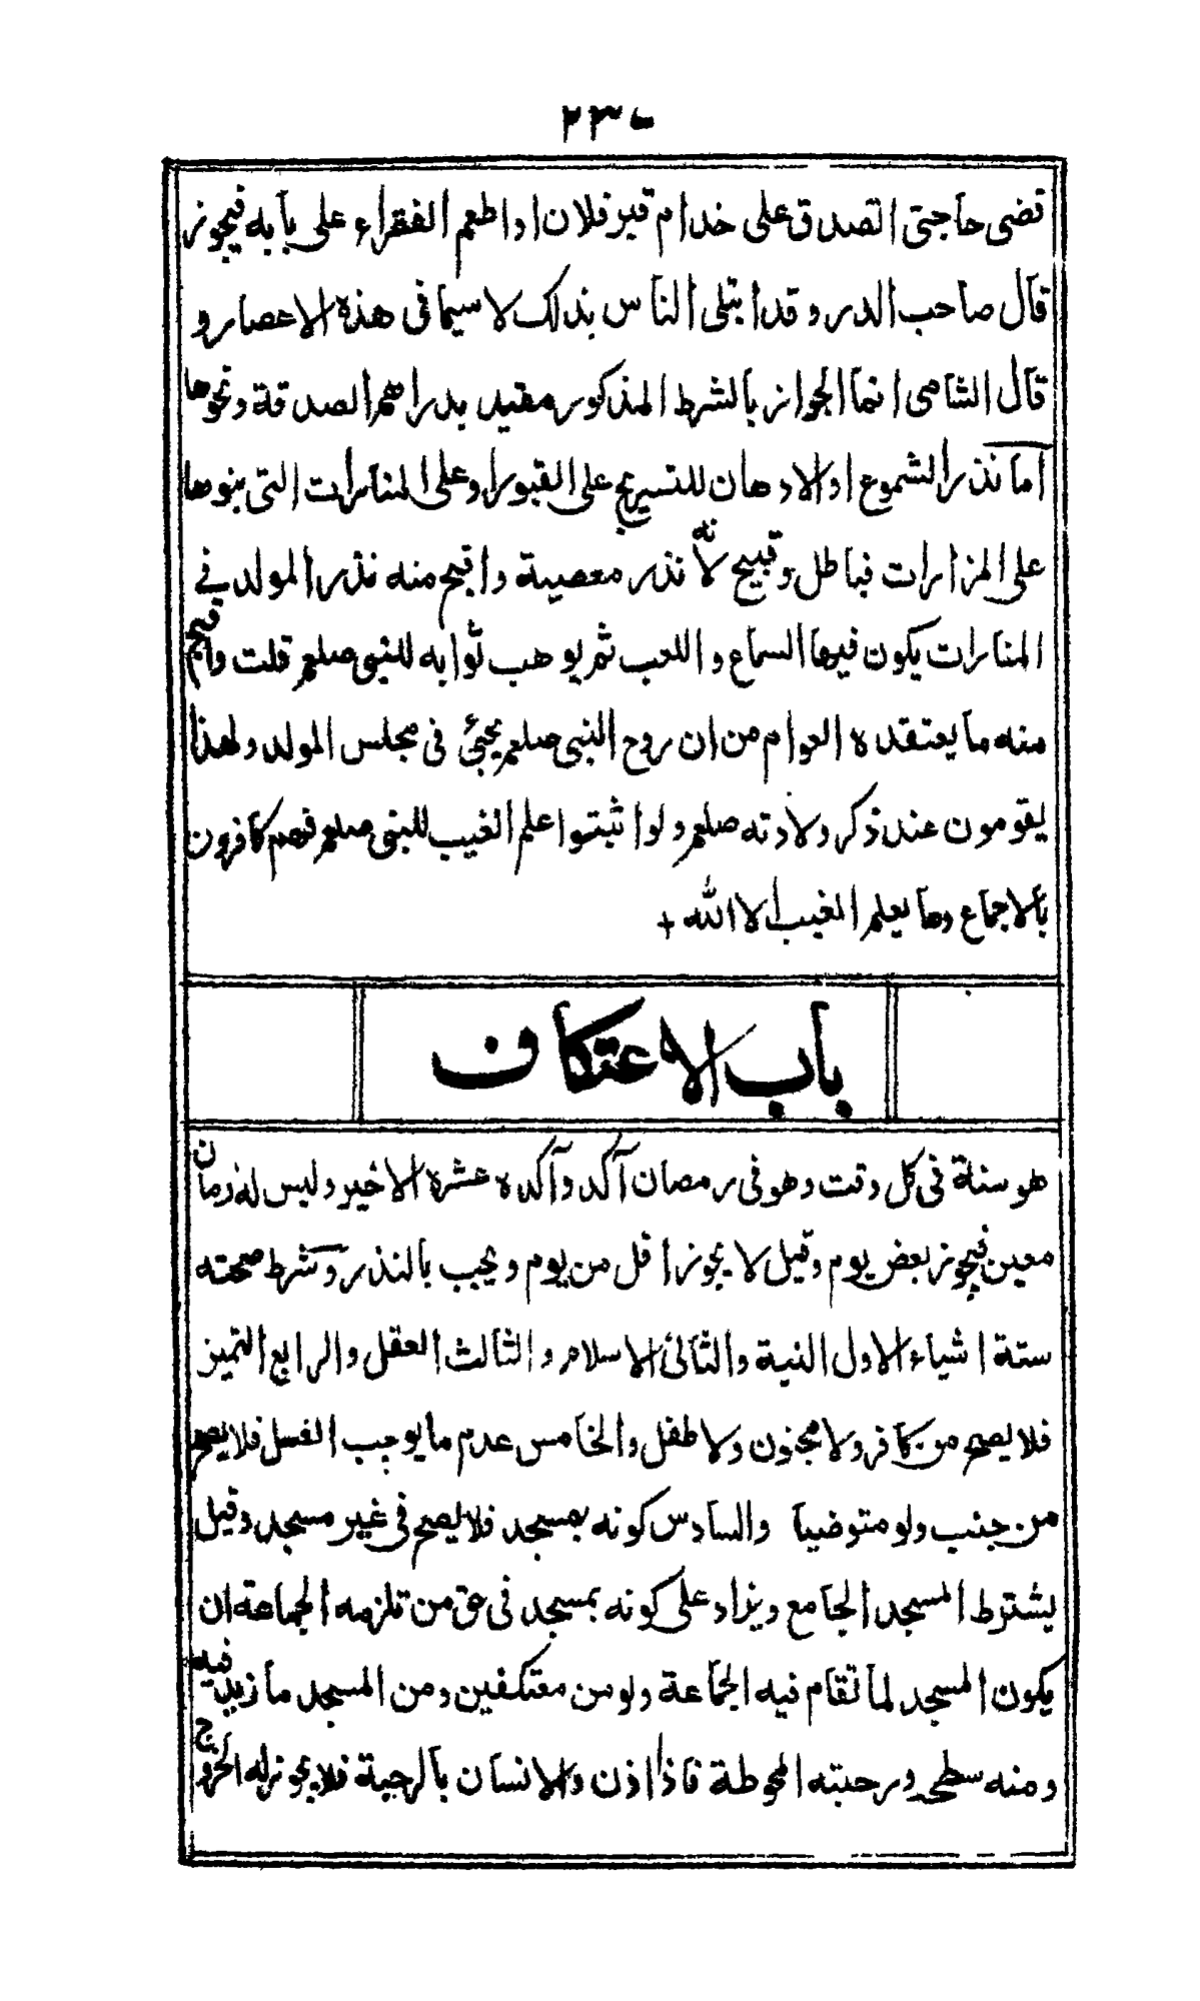 ٢٣٠
قضى حاجتى اتصدق على خدام قبر فلان او اطعم الفقراء على بابه فيجوز
قال صاحب الدر وقد ابتلى الناس بذلك لا سيما فى هذه الاعصار و
قال الشامى انما الجواز بالشرط المذكور مقيد بدراهم الصدقة ونحوها
اما نذر الشموع او الادهان للتسريج على القبور او على المنارات التى بنوها
على المزارات فباطل وقبيح لانه نذر معصية واقبح منه نذر المولد فى
المنارات يكون فيها السماع و اللعب ثم يوهب ثوابه للنبى صلعم قلت واقبح
منه ما يعتقده العوام من ان روح النبى صلعم يجيئ فى مجلس المولد ولهذا
يقومون عند ذكر ولادته صلعم ولو اثبتوا علم الغيب للبنى صلعم فهم كافرون
بالاجماع وما يعلم الغيب الا الله +
باب الاعتكاف
هو سنة فى كل وقت وهو فى رمصان آكد وآكده عشره الاخير وليس له زمان
معين فيجوز بعض يوم وقيل لا يجوز اقل من يوم ويجب بالنذر وشرط صحته
ستة اشياء الاول النية والثانى الاسلام والثالث العقل والرابع التميز
فلا يصح من كافر ولا مجنون ولا طفل والخامس عدم ما يوجب الغسل فلا يصح
من جنب ولو متوضيا والسادس كونه بمسجد فلا يصح فى غير مسجد وقيل
يشترط المسجد الجامع ويزاد على كونه بمسجد فى حق من تلزمه الجماعة ان
يكون المسجد لما تقام فيه الجماعة ولو من معتكفين ومن المسجد ما زيد فيه
ومنه سطحه ورحبته المحوطة فاذا اذن والانسان بالرحبة فلا يجوز له الخروج